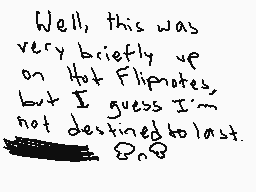 Well, this was
very briefly up
on Hot Flipnotes,
but I guess I'm
not destined to last.